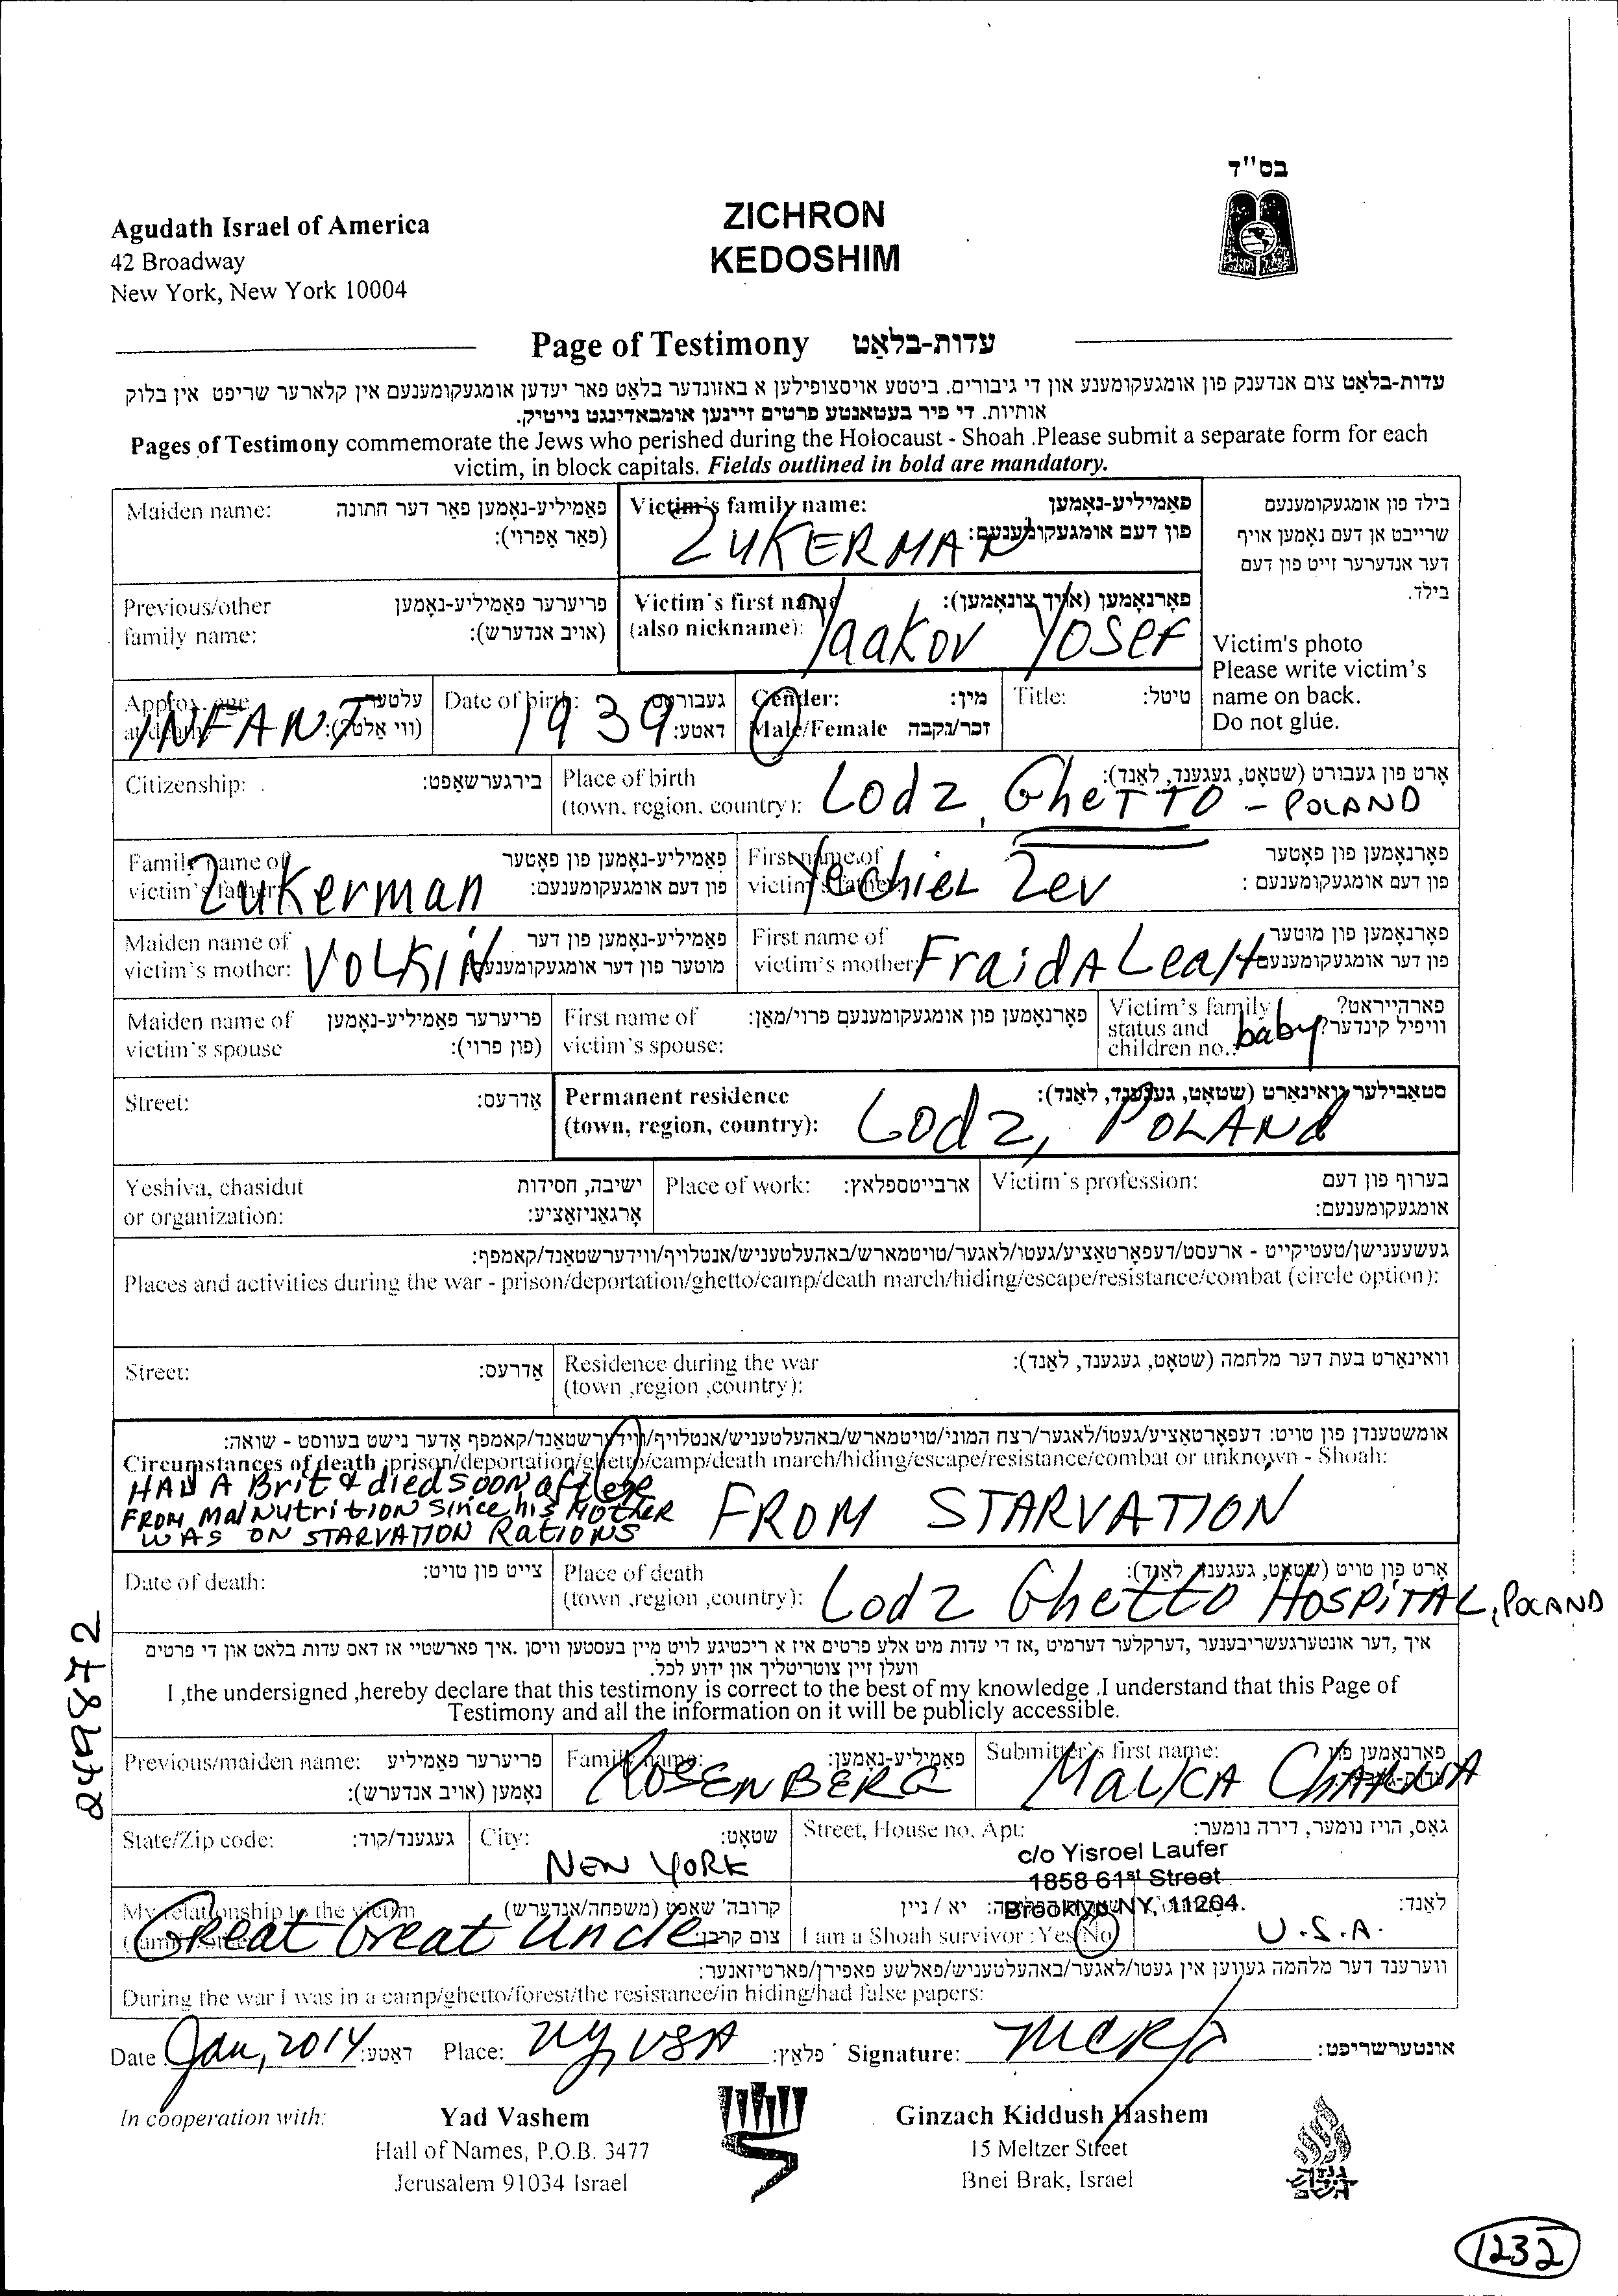 בס"ד
Agudath Israel of America
42 Broadway
New York, New York 10004
ZICHRON
KEDOSHIM
Page of Testimony עדות-בלאַט
עדות-בלאַט צום אנדענק פון אומגעקומענע און די גיבורים. ביטטע אויסצופילען א באזונדער בלאַט פאר יעדען אומגעקומענעם אין קלארער שריפט אין בלוק
אותיות. די פיר בעטאנטע פרטים זיינען אומבאדינגט נייטיק.
Pages of Testimony commemorate the Jews who perished during the Holocaust - Shoah .Please submit a separate form for each
victim, in block capitals. Fields outlined in bold are mandatory.
Maiden name: פאַמיליע-נאָמען פאַר דער חתונה
(פאַר אַפרוי):
Victim's family name: פאַמיליע-נאָמען
פון דעם אומגעקומענעם:
ZUKERMAN
בילד פון אומגעקומענעם
שרייבט אן דעם נאָמען אויף
דער אנדערער זייט פון דעם
בילד.
Victim's photo
Please write victim's
name on back.
Do not glue.
Previous/other פריערער פאַמיליע-נאָמען
family name: (אויב אנדערש):
Victim's first name פאָרנאָמען (אויך צונאָמען):
(also nickname): Yaakov Yosef
Approx. age עלטער
at death: (ווי אַלט?):
INFANT
Date of birth: געבורטס
דאַטע:
1939
Gender: מין:
Male/Female זכר/נקבה
Title: טיטל:
Citizenship: בירגערשאַפט:
Place of birth אָרט פון געבורט (שטאָט, געגענד, לאַנד):
(town, region, country): Lodz, Ghetto - POLAND
Family name of פאַמיליע-נאָמען פון פאָטער
victim's father: פון דעם אומגעקומענעם:
Zukerman
First name of פאָרנאָמען פון פאָטער
victim's father: פון דעם אומגעקומענעם :
Yechiel Zev
Maiden name of פאַמיליע-נאָמען פון דער
victim's mother: מוטער פון דער אומגעקומענעם
VOLKIN
First name of פאָרנאָמען פון מוטער
victim's mother: פון דער אומגעקומענעם
FraidA LeaH
Maiden name of פריערער פאַמיליע-נאָמען
victim's spouse (פון פרוי):
First name of פאָרנאָמען פון אומגעקומענעם פרוי/מאַן:
victim's spouse:
Victim's family פארהייראט?
status and וויפיל קינדער?
children no.: baby
Street: אַדרעס:
Permanent residence סטאַבילער וואוינאָרט (שטאָט, געגענד, לאַנד):
(town, region, country): Lodz, POLANd
Yeshiva, chasidut ישיבה, חסידות
or organization: אָרגאַניזאַציע:
Place of work: ארבייטספּלאַץ:
Victim's profession: בערוף פון דעם
אומגעקומענעם:
געשעענישן/טעטיקייט - ארעסט/דעפּאָרטאַציע/געטו/לאַגער/טויטמארש/באהעלטעניש/אנטלויף/ווידערשטאַנד/קאמפף:
Places and activities during the war - prison/deportation/ghetto/camp/death march/hiding/escape/resistance/combat (circle option):
Street: אַדרעס:
Residence during the war וואוינאָרט בעת דער מלחמה (שטאָט, געגענד, לאַנד):
(town ,region ,country):
אומשטענדן פון טויט: דעפּאָרטאַציע/געטו/לאַגער/רצח המוני/טויטמארש/באהעלטעניש/אנטלויף/ווידערשטאַנד/קאמפף אָדער נישט בעוואוסט - שואה:
Circumstances of death :prison/deportation/ghetto/camp/death march/hiding/escape/resistance/combat or unknown - Shoah:
HAD A Brit & died soon after
FROM MalNutrition since his MotheR
WAS ON STARVATION RatioNS
FROM STARVATION
Date of death: צייט פון טויט:
Place of death אָרט פון טויט (שטאָט, געגענד, לאַנד):
(town ,region ,country): Lodz Ghetto HOSPiTAL, POLAND
איך ,דער אונטערגעשריבענער ,דערקלער דערמיט ,אז די עדות מיט אלע פרטים איז א ריכטיגע לויט מיין בעסטען וויסן .איך פארשטיי אז דאס עדות בלאט און די פרטים
וועלן זיין צוטריטליך און ידוע לכל.
I ,the undersigned ,hereby declare that this testimony is correct to the best of my knowledge .I understand that this Page of
Testimony and all the information on it will be publicly accessible.
2499872
Previous/maiden name: פריערער פאַמיליע
נאָמען (אויב אנדערש):
Family name: פאַמיליע-נאָמען:
ROSENBERG
Submitter's first name: פאָרנאָמען פון
MalKA CHANNA
State/Zip code: געגענד/קוד:
City: שטאָט:
NEW YORK
Street, House no, Apt: גאַס, הויז נומער, דירה נומער:
c/o Yisroel Laufer
1858 61st Street
Brooklyn, NY, 11204.
My relationship to the victim קרובה' שאַפט (משפחה/אנדערש)
צום קרבן:
Great Great Uncle
יא / ניין
I am a Shoah survivor : Yes/No
לאַנד:
U.S.A.
ווערענד דער מלחמה געווען אין געטו/לאַגער/באהעלטעניש/פאלשע פאפירן/פארטיזאנער:
During the war I was in a camp/ghetto/forest/the resistance/in hiding/had false papers:
Date: Jan, 2014 דאַטע: Place: NY, USA פּלאַץ: Signature: אונטערשריפט:
In cooperation with:
Yad Vashem
Hall of Names, P.O.B. 3477
Jerusalem 91034 Israel
Ginzach Kiddush Hashem
15 Meltzer Street
Bnei Brak, Israel
גנזך
קידוש
השם
1232